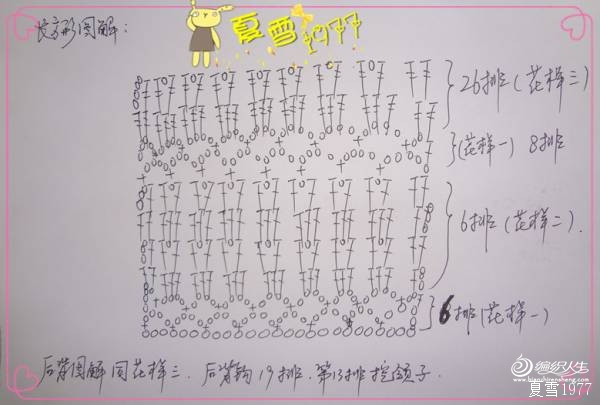 夏雪1977
长方形图解：
26排（花样三）
（花样一）8排
6排（花样二）.
6排（花样一）
后背图解同花样三．后背钩19排．第13排挖领子．
编织人生
www.bianzhirensheng.com
夏雪1977